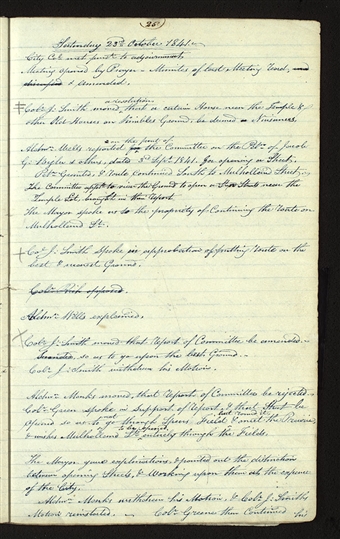 25
Saturday 23rd October 1841.
City Col. met purst. to adjournment.
Meeting opened by Prayer - Minutes of last Meeting read, and
& Amended.
a resolution
Colr. J. Smith moved, that a certain House near the Temple &
other Old Houses on Kimbles Ground, be deemed Nuisances
on the part of
Aldmn. Wells reported the Committee on the Petn. of Jacob
G. Bigler & others, dated 3d Sept. 1841. for opening a Street;
Petn. Granted, & Route continued South to Mulholland Street;
The Committee appd. to view the Ground to open a Street near the
Temple Lot, brought in their Report
The Mayor spoke as to the propriety of Continuing the Route on
Mulholland St.
Colr. J. Smith spoke in approbation of putting Route on the
best & nearest Ground.
Colr. Rich opposed.
Aldmn. Wells explained.
Colr. J. Smith moved that Report of Committee be amended
so as to go upon the best Ground
Colr. J. Smith withdrew his Motion.
Aldmn. Marks moved, that Report of Committee be rejected
Colr. Green spoke in support of Report, & that Street be
opened so as to go through Spears' Field & meet the Prairie,
& wishes Mulholland St. entirely through the Fields.
The Mayor gave explanations, & pointed out the distinction
between opening Streets, & Working upon them at the expense
of the City.
Aldmn. Marks withdrew his Motion, & Colr. J. Smith's
Motion reinstated. Colr. Greene then Continued his